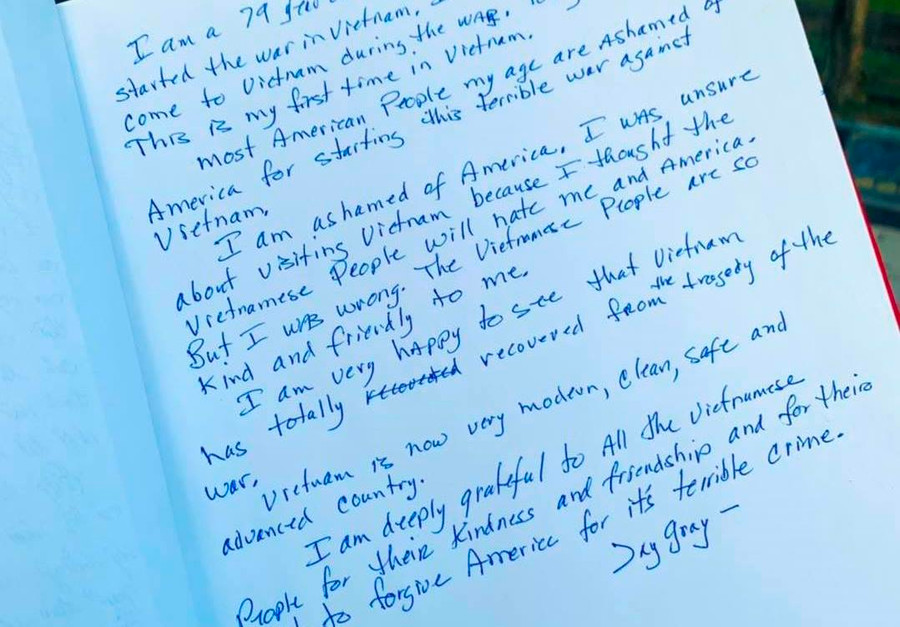 I am a 79
started the war in Vietnam.
come to Vietnam during the WAR.
This is my first time in Vietnam.
most American People my age are Ashamed of
America for starting this terrible war against
Vietnam.
I am ashamed of America. I was unsure
about visiting Vietnam because I thought the
Vietnamese People will hate me and America.
But I was wrong. The Vietnamese People are so
kind and friendly to me.
I am very happy to see that Vietnam
has totally recovered from the tragedy of the
war.
Vietnam is now very modern, clean, safe and
advanced country.
I am deeply grateful to All the Vietnamese
People for their kindness and friendship and for their
to forgive America for it's terrible crime.
Jay Gray -